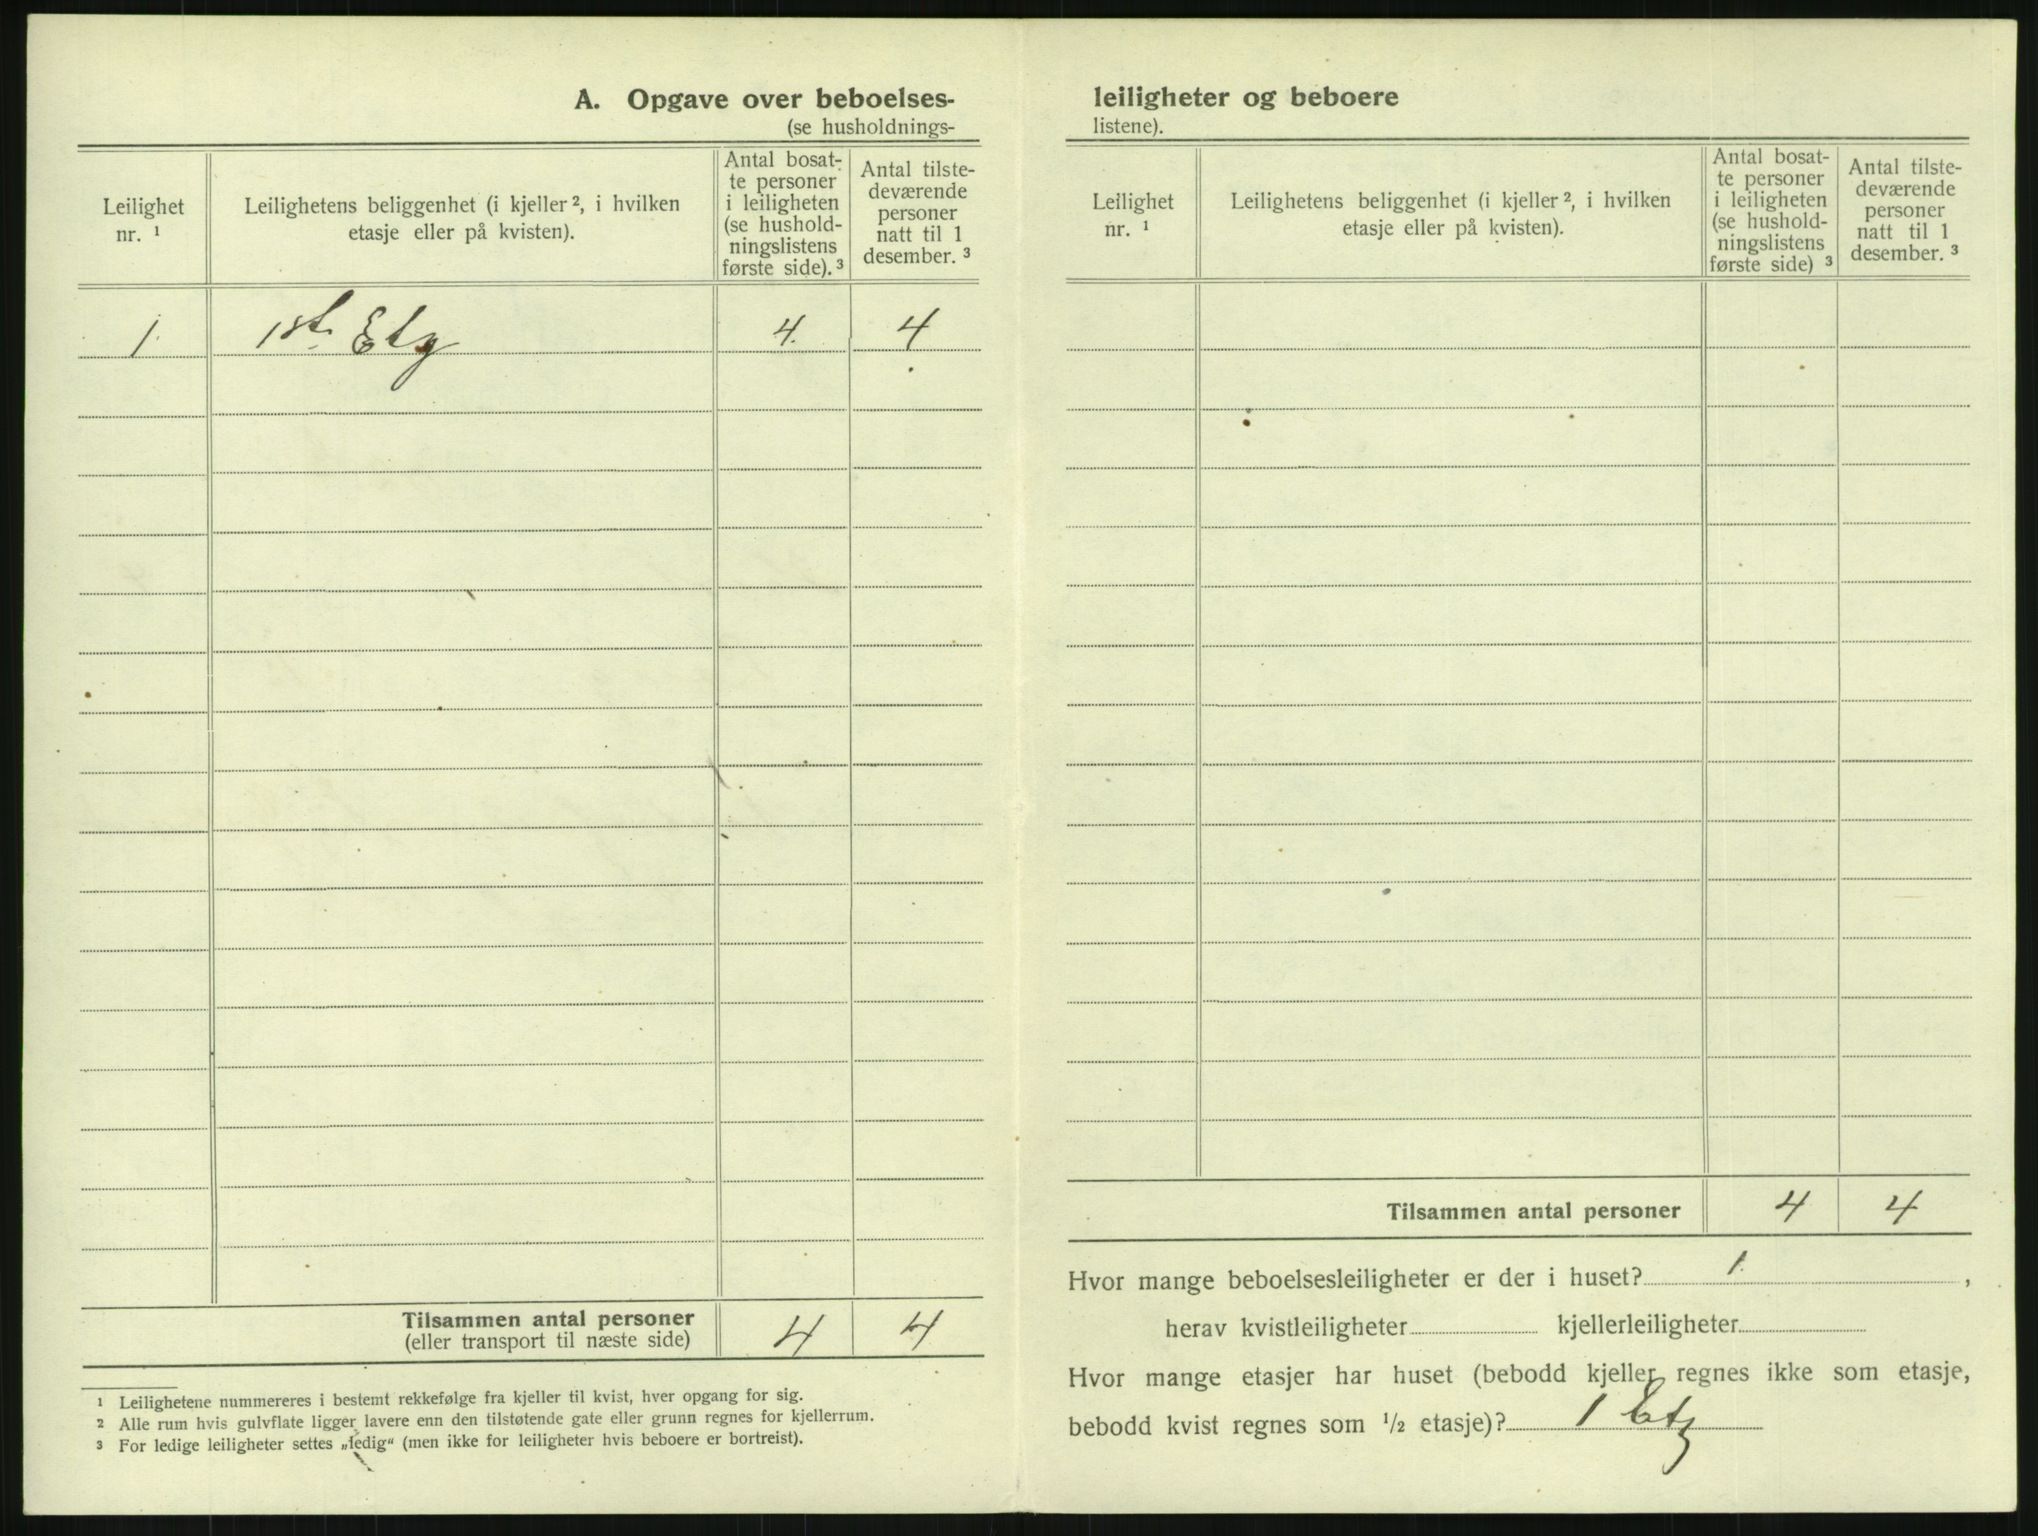 A. Opgave over beboelses-
(se husholdnings-
Leilighet
nr. ¹
Leilighetens beliggenhet (i kjeller ², i hvilken
etasje eller på kvisten).
Antal bosat-
te personer
i leiligheten
(se hushold-
ningslistens
første side). ³
Antal tilste-
deværende
personer
natt til 1
desember. ³
1. 1ste Etg 4. 4
Tilsammen antal personer 4 4
(eller transport til næste side)
¹ Leilighetene nummereres i bestemt rekkefølge fra kjeller til kvist, hver opgang for sig.
² Alle rum hvis gulvflate ligger lavere enn den tilstøtende gate eller grunn regnes for kjellerrum.
³ For ledige leiligheter settes „ledig“ (men ikke for leiligheter hvis beboere er bortreist).
leiligheter og beboere
listene).
Leilighet
nr. ¹
Leilighetens beliggenhet (i kjeller ², i hvilken
etasje eller på kvisten).
Antal bosat-
te personer
i leiligheten
(se hushold-
ningslistens
første side) ³
Antal tilste-
deværende
personer
natt til 1
desember. ³
Tilsammen antal personer 4 4
Hvor mange beboelsesleiligheter er der i huset? 1. ,
herav kvistleiligheter kjellerleiligheter
Hvor mange etasjer har huset (bebodd kjeller regnes ikke som etasje,
bebodd kvist regnes som ½ etasje)? 1 Etg